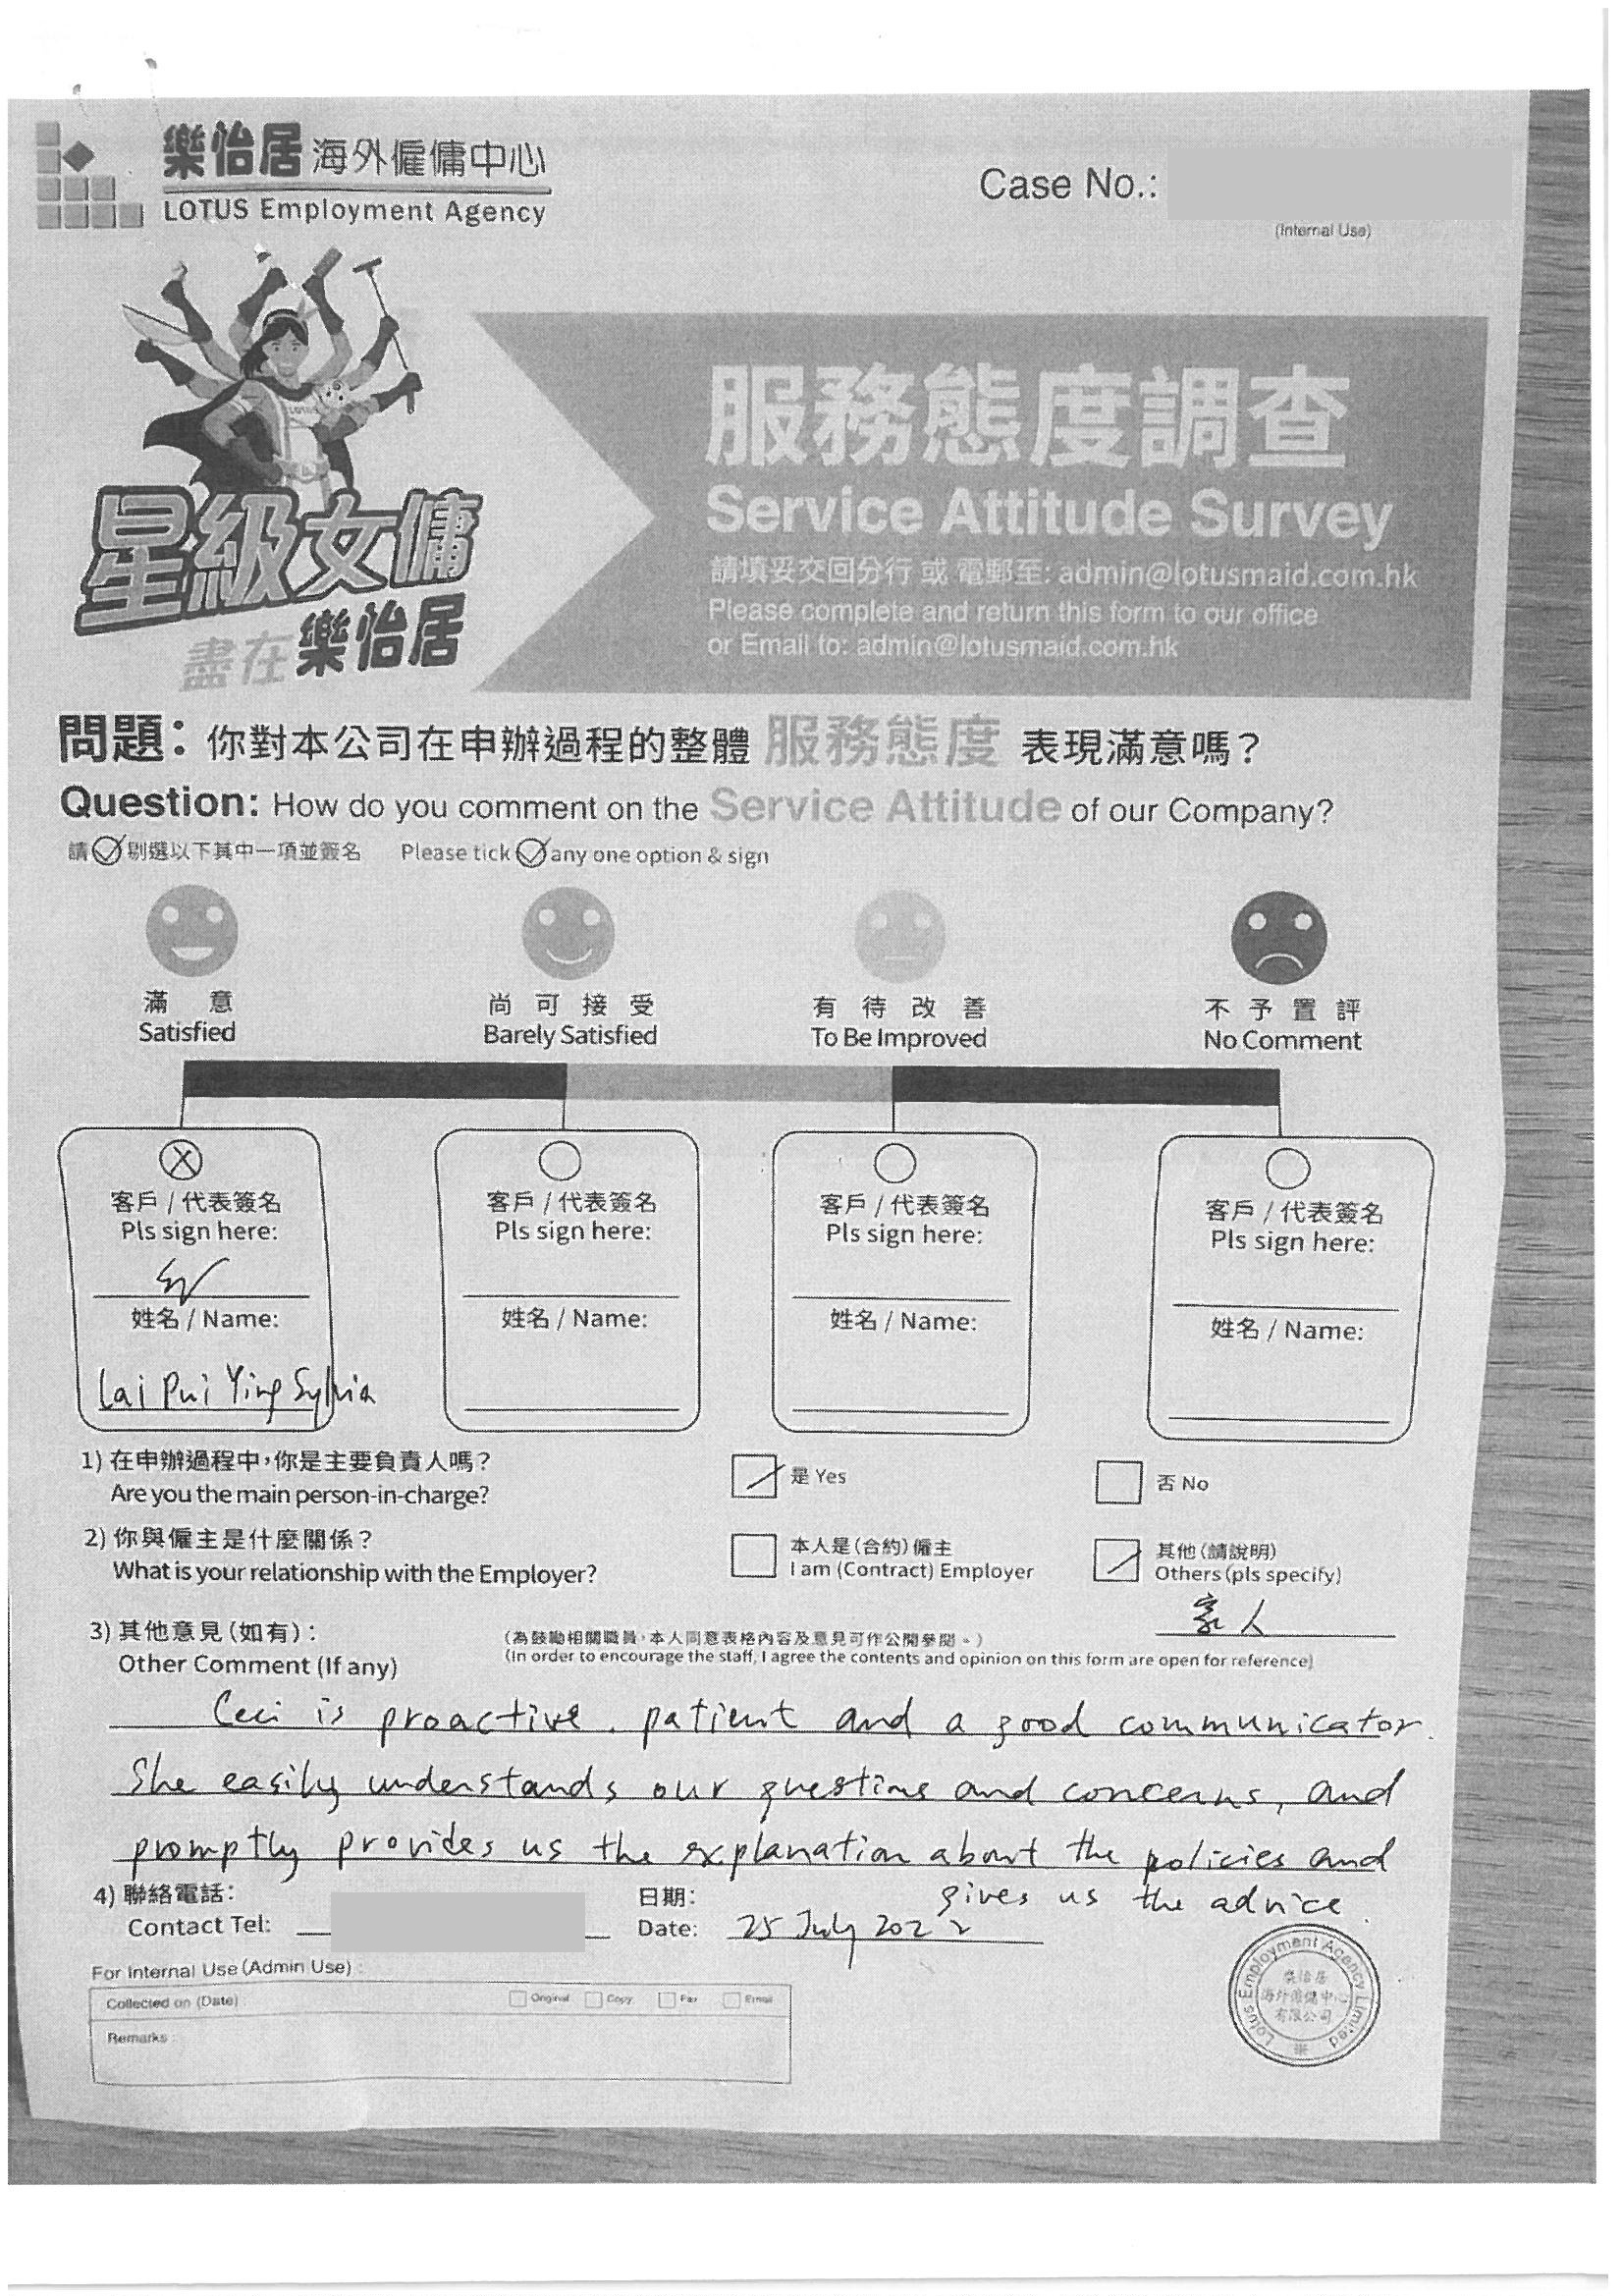 樂怡居 海外僱傭中心
LOTUS Employment Agency
Case No.:
(Internal Use)
LOTUS
星級女傭
盡在樂怡居
服務態度調查
Service Attitude Survey
請填妥交回分行 或 電郵至: admin@lotusmaid.com.hk
Please complete and return this form to our office
or Email to: admin@lotusmaid.com.hk
問題：你對本公司在申辦過程的整體 服務態度 表現滿意嗎？
Question: How do you comment on the Service Attitude of our Company?
請 剔選以下其中一項並簽名 Please tick any one option & sign
滿意 尚可接受 有待改善 不予置評
Satisfied Barely Satisfied To Be Improved No Comment
客戶 / 代表簽名 客戶 / 代表簽名 客戶 / 代表簽名 客戶 / 代表簽名
Pls sign here: Pls sign here: Pls sign here: Pls sign here:
姓名 / Name: 姓名 / Name: 姓名 / Name: 姓名 / Name:
Lai Pui Ying Sylvia
1) 在申辦過程中，你是主要負責人嗎？ 是 Yes 否 No
Are you the main person-in-charge?
2) 你與僱主是什麼關係？ 本人是(合約)僱主 其他(請說明)
What is your relationship with the Employer? I am (Contract) Employer Others (pls specify)
家人
3) 其他意見(如有)： (為鼓勵相關職員，本人同意表格內容及意見可作公開參閱。)
Other Comment (If any) (In order to encourage the staff, I agree the contents and opinion on this form are open for reference)
Ceci is proactive, patient and a good communicator.
She easily understands our questions and concerns, and
promptly provides us the explanation about the policies and
gives us the advice.
4) 聯絡電話： 日期：
Contact Tel: Date: 25 July 2022
For Internal Use (Admin Use) :
Collected on (Date) Original Copy Fax Email
Remarks :
Lotus Employment Agency Limited
樂怡居
海外僱傭中心
有限公司